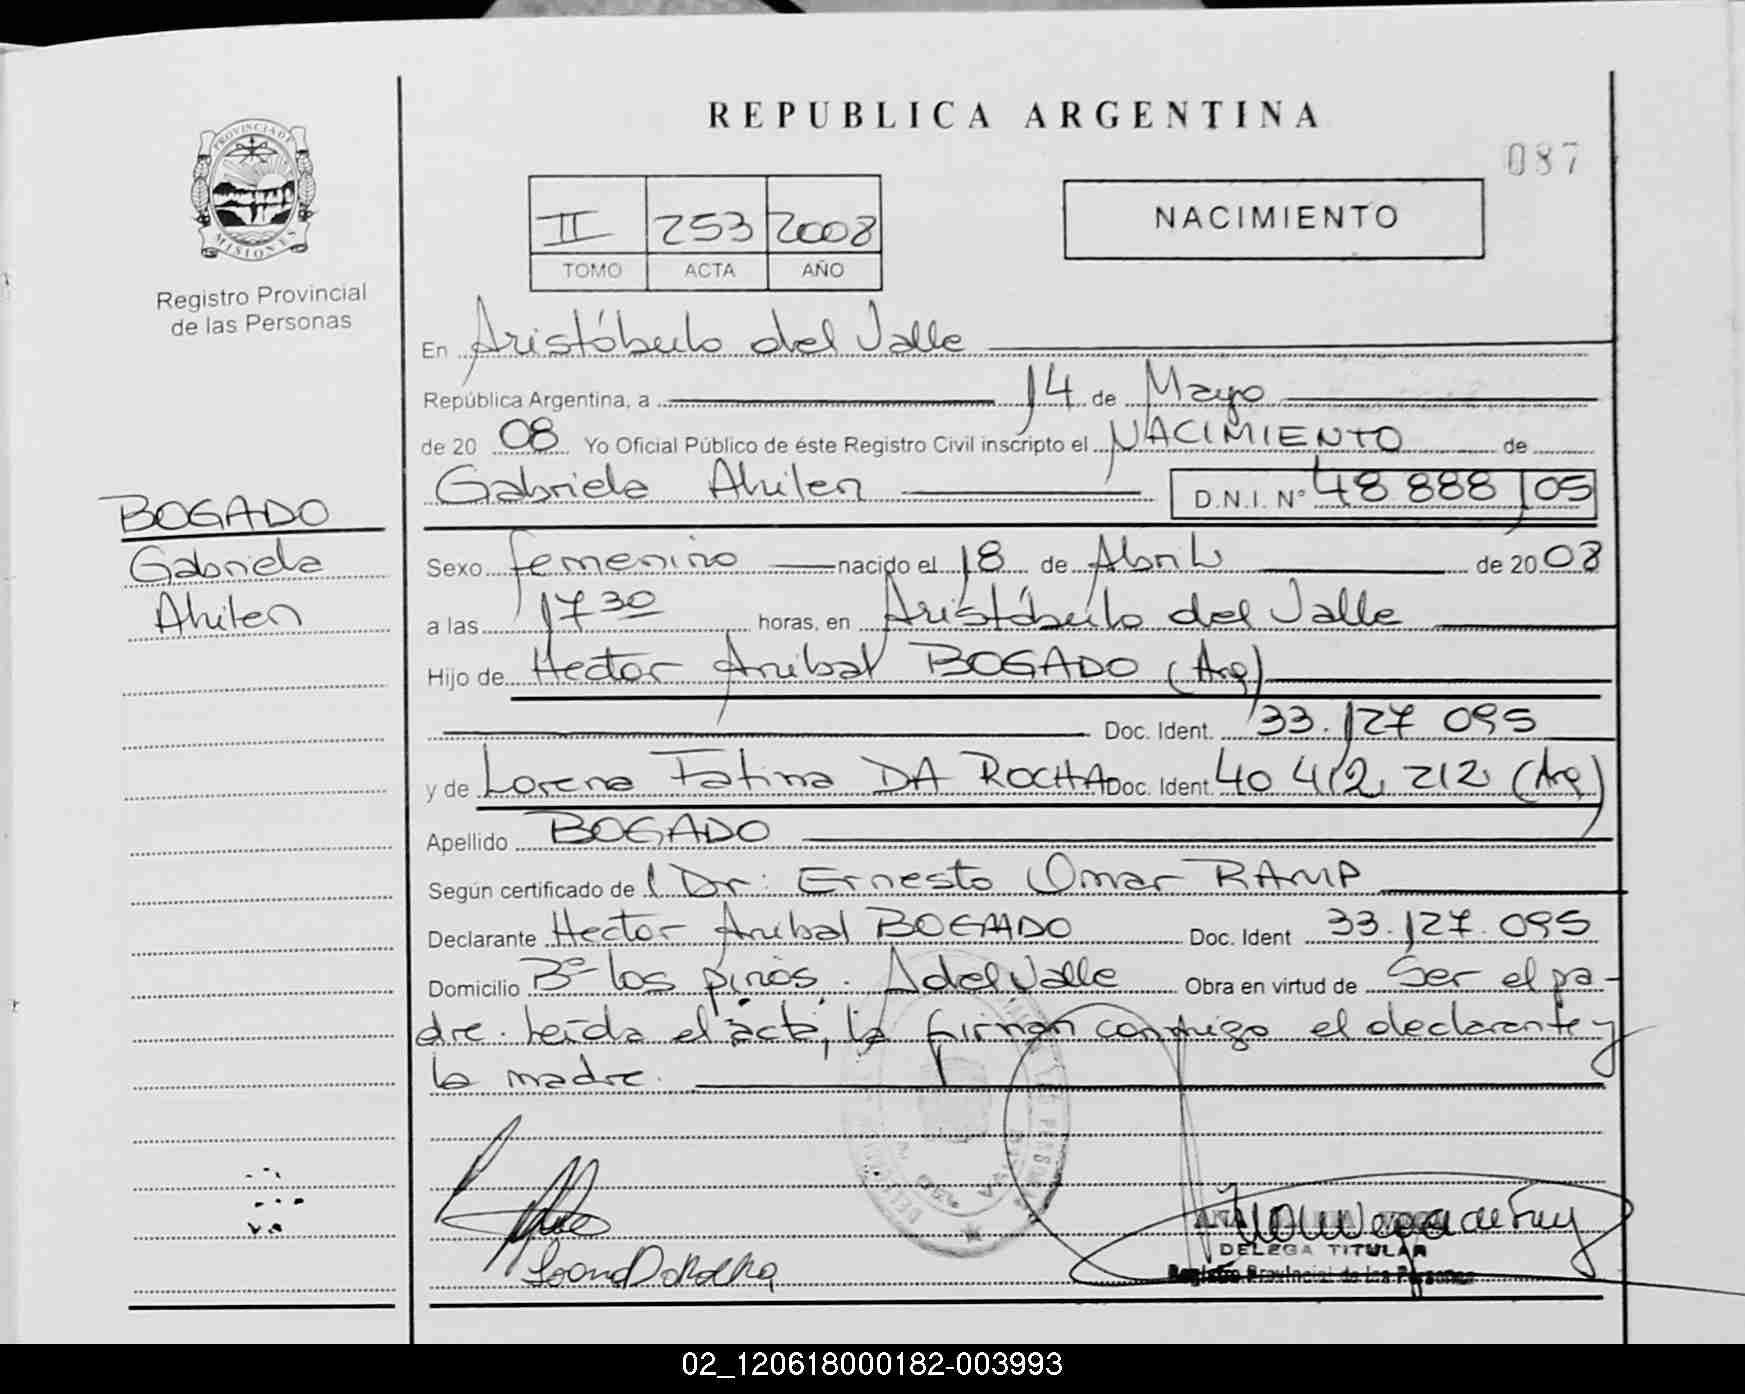 REPUBLICA ARGENTINA
087
PROVINCIA DE
MISIONES
Registro Provincial
de las Personas
II 253 2008
TOMO ACTA AÑO
NACIMIENTO
En Aristóbulo del Valle
República Argentina, a 14 de Mayo
de 20 08 Yo Oficial Público de éste Registro Civil inscripto el NACIMIENTO de
Gabriela Ahilen D.N.I. N° 48 888 105
BOGADO
Gabriela
Ahilen
Sexo femenino nacido el 18 de Abril de 20 08
a las 17 30 horas, en Aristóbulo del Valle
Hijo de Hector Anibal BOGADO (Arg)
Doc. Ident. 33.127 095
y de Lorena Fatima DA ROCHA Doc. Ident. 40 412 212 (Arg)
Apellido BOGADO
Según certificado de Dr: Ernesto Omar RAMP
Declarante Hector Anibal BOGADO Doc. Ident 33.127.095
Domicilio B° los pinos. A del Valle Obra en virtud de Ser el pa-
dre. Leída el acta, la firman conmigo el declarante y
la madre.
DELEGA TITULAR
Registro Provincial de las Personas
02_120618000182-003993